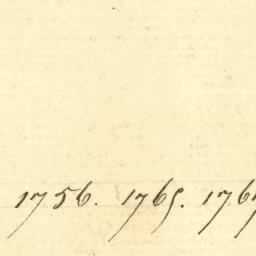 1756. 1765. 1767